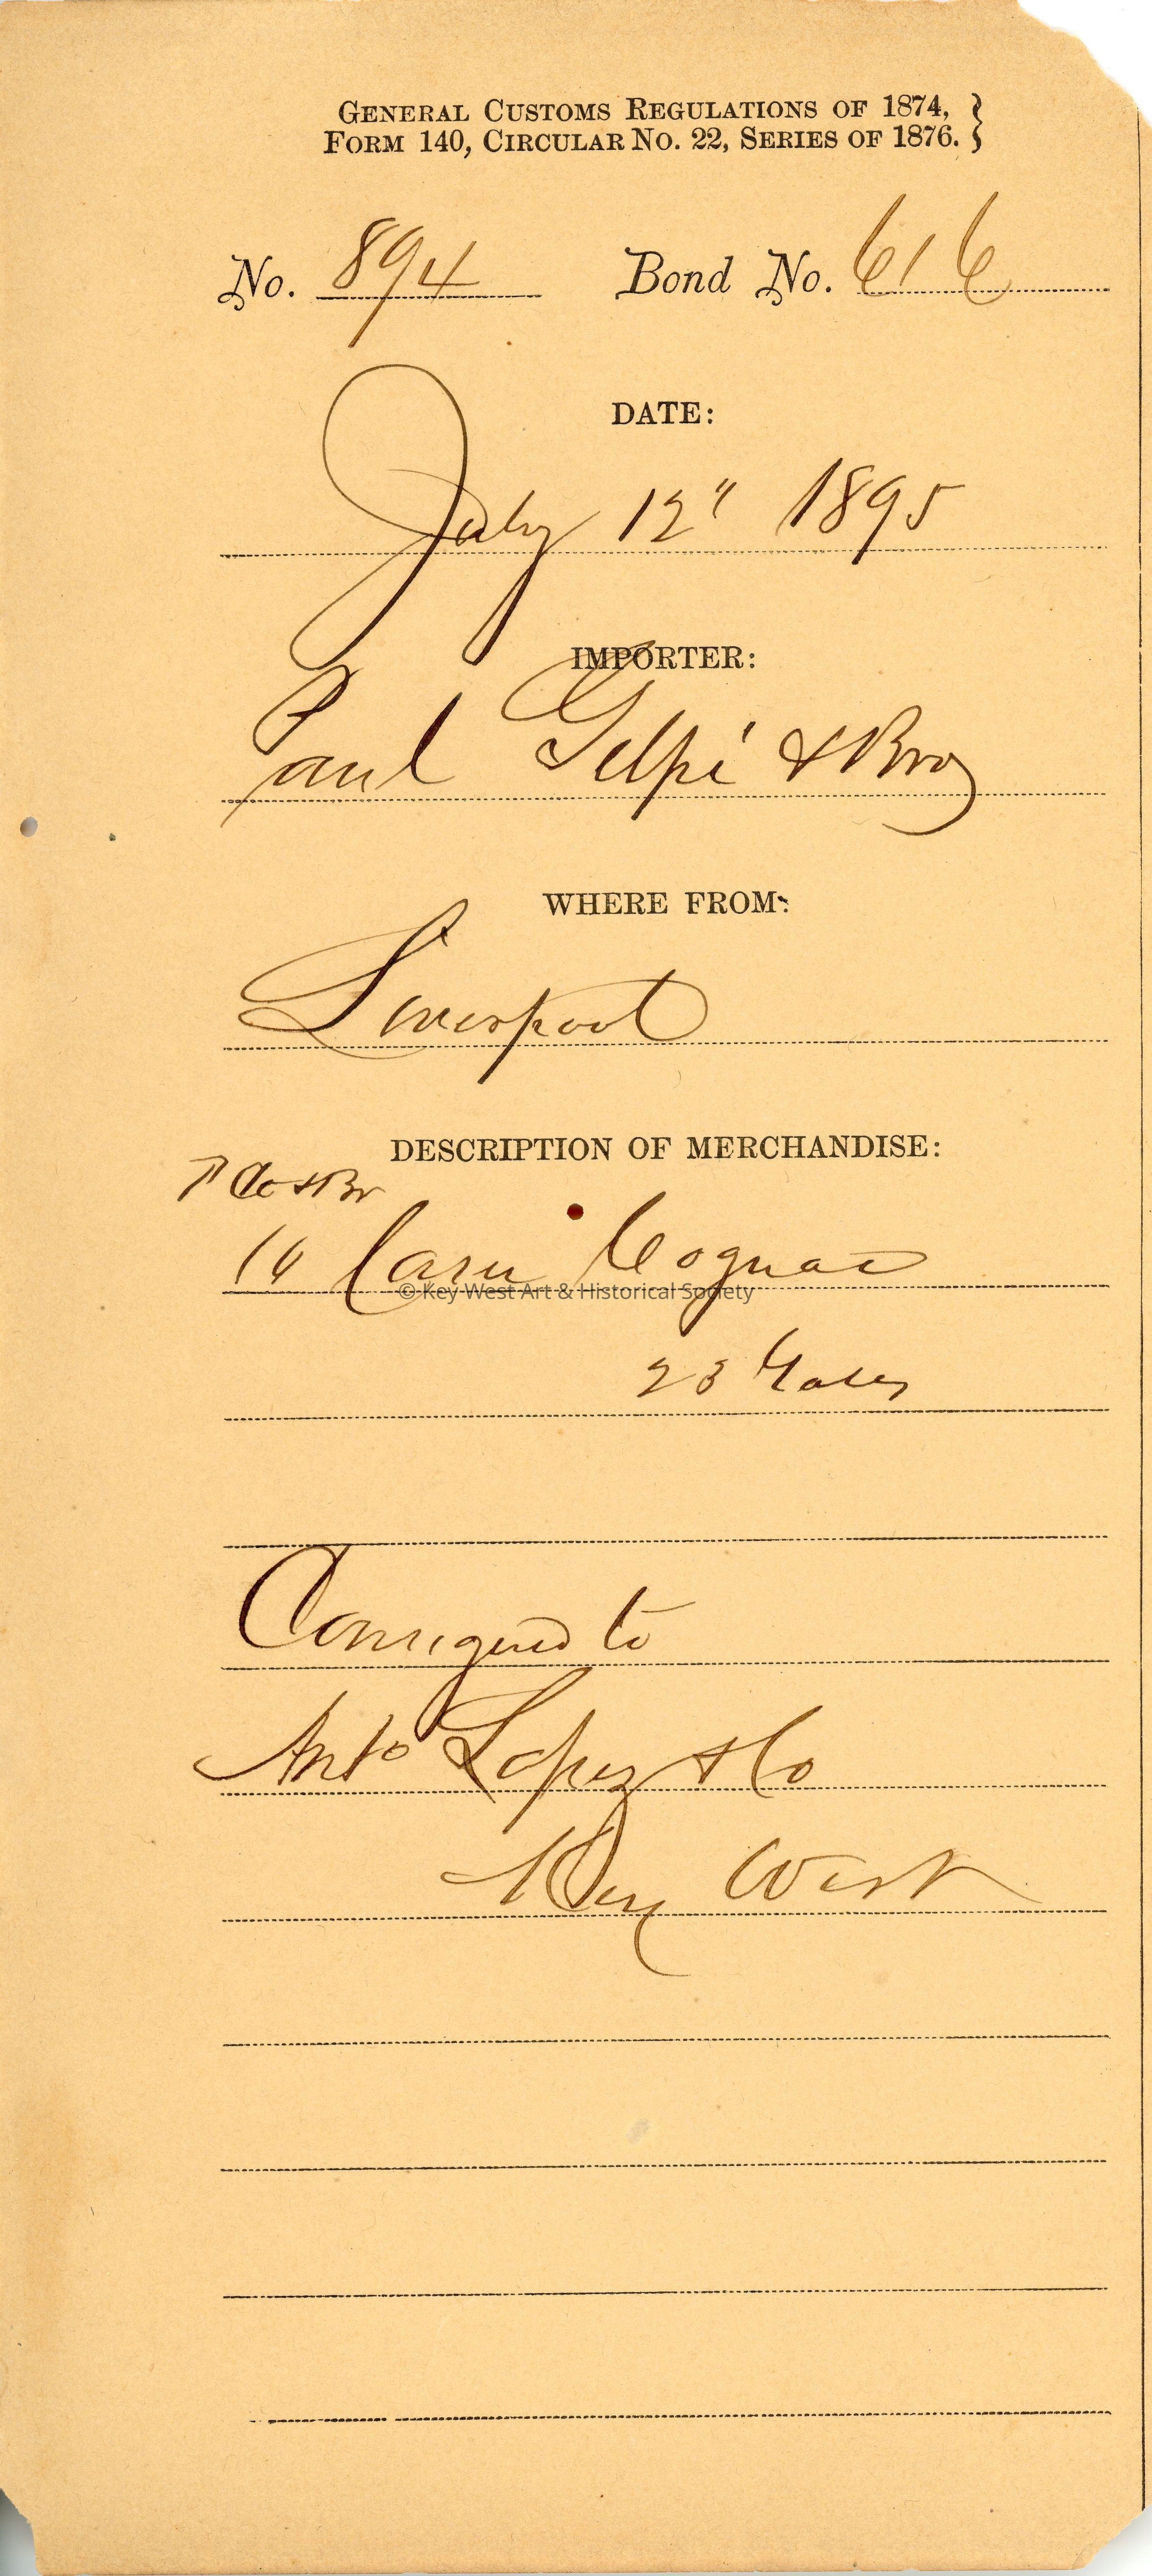 GENERAL CUSTOMS REGULATIONS OF 1874, }
FORM 140, CIRCULAR NO. 22, SERIES OF 1876. }
No. 894 Bond No. 616
DATE:
July 12" 1895
IMPORTER:
Paul Gelpi & Bro
WHERE FROM:
Liverpool
DESCRIPTION OF MERCHANDISE:
Cases Cognac
© Key West Art & Historical Society
23 Galls
Consigned to
Anto Lopez & Co
Key West